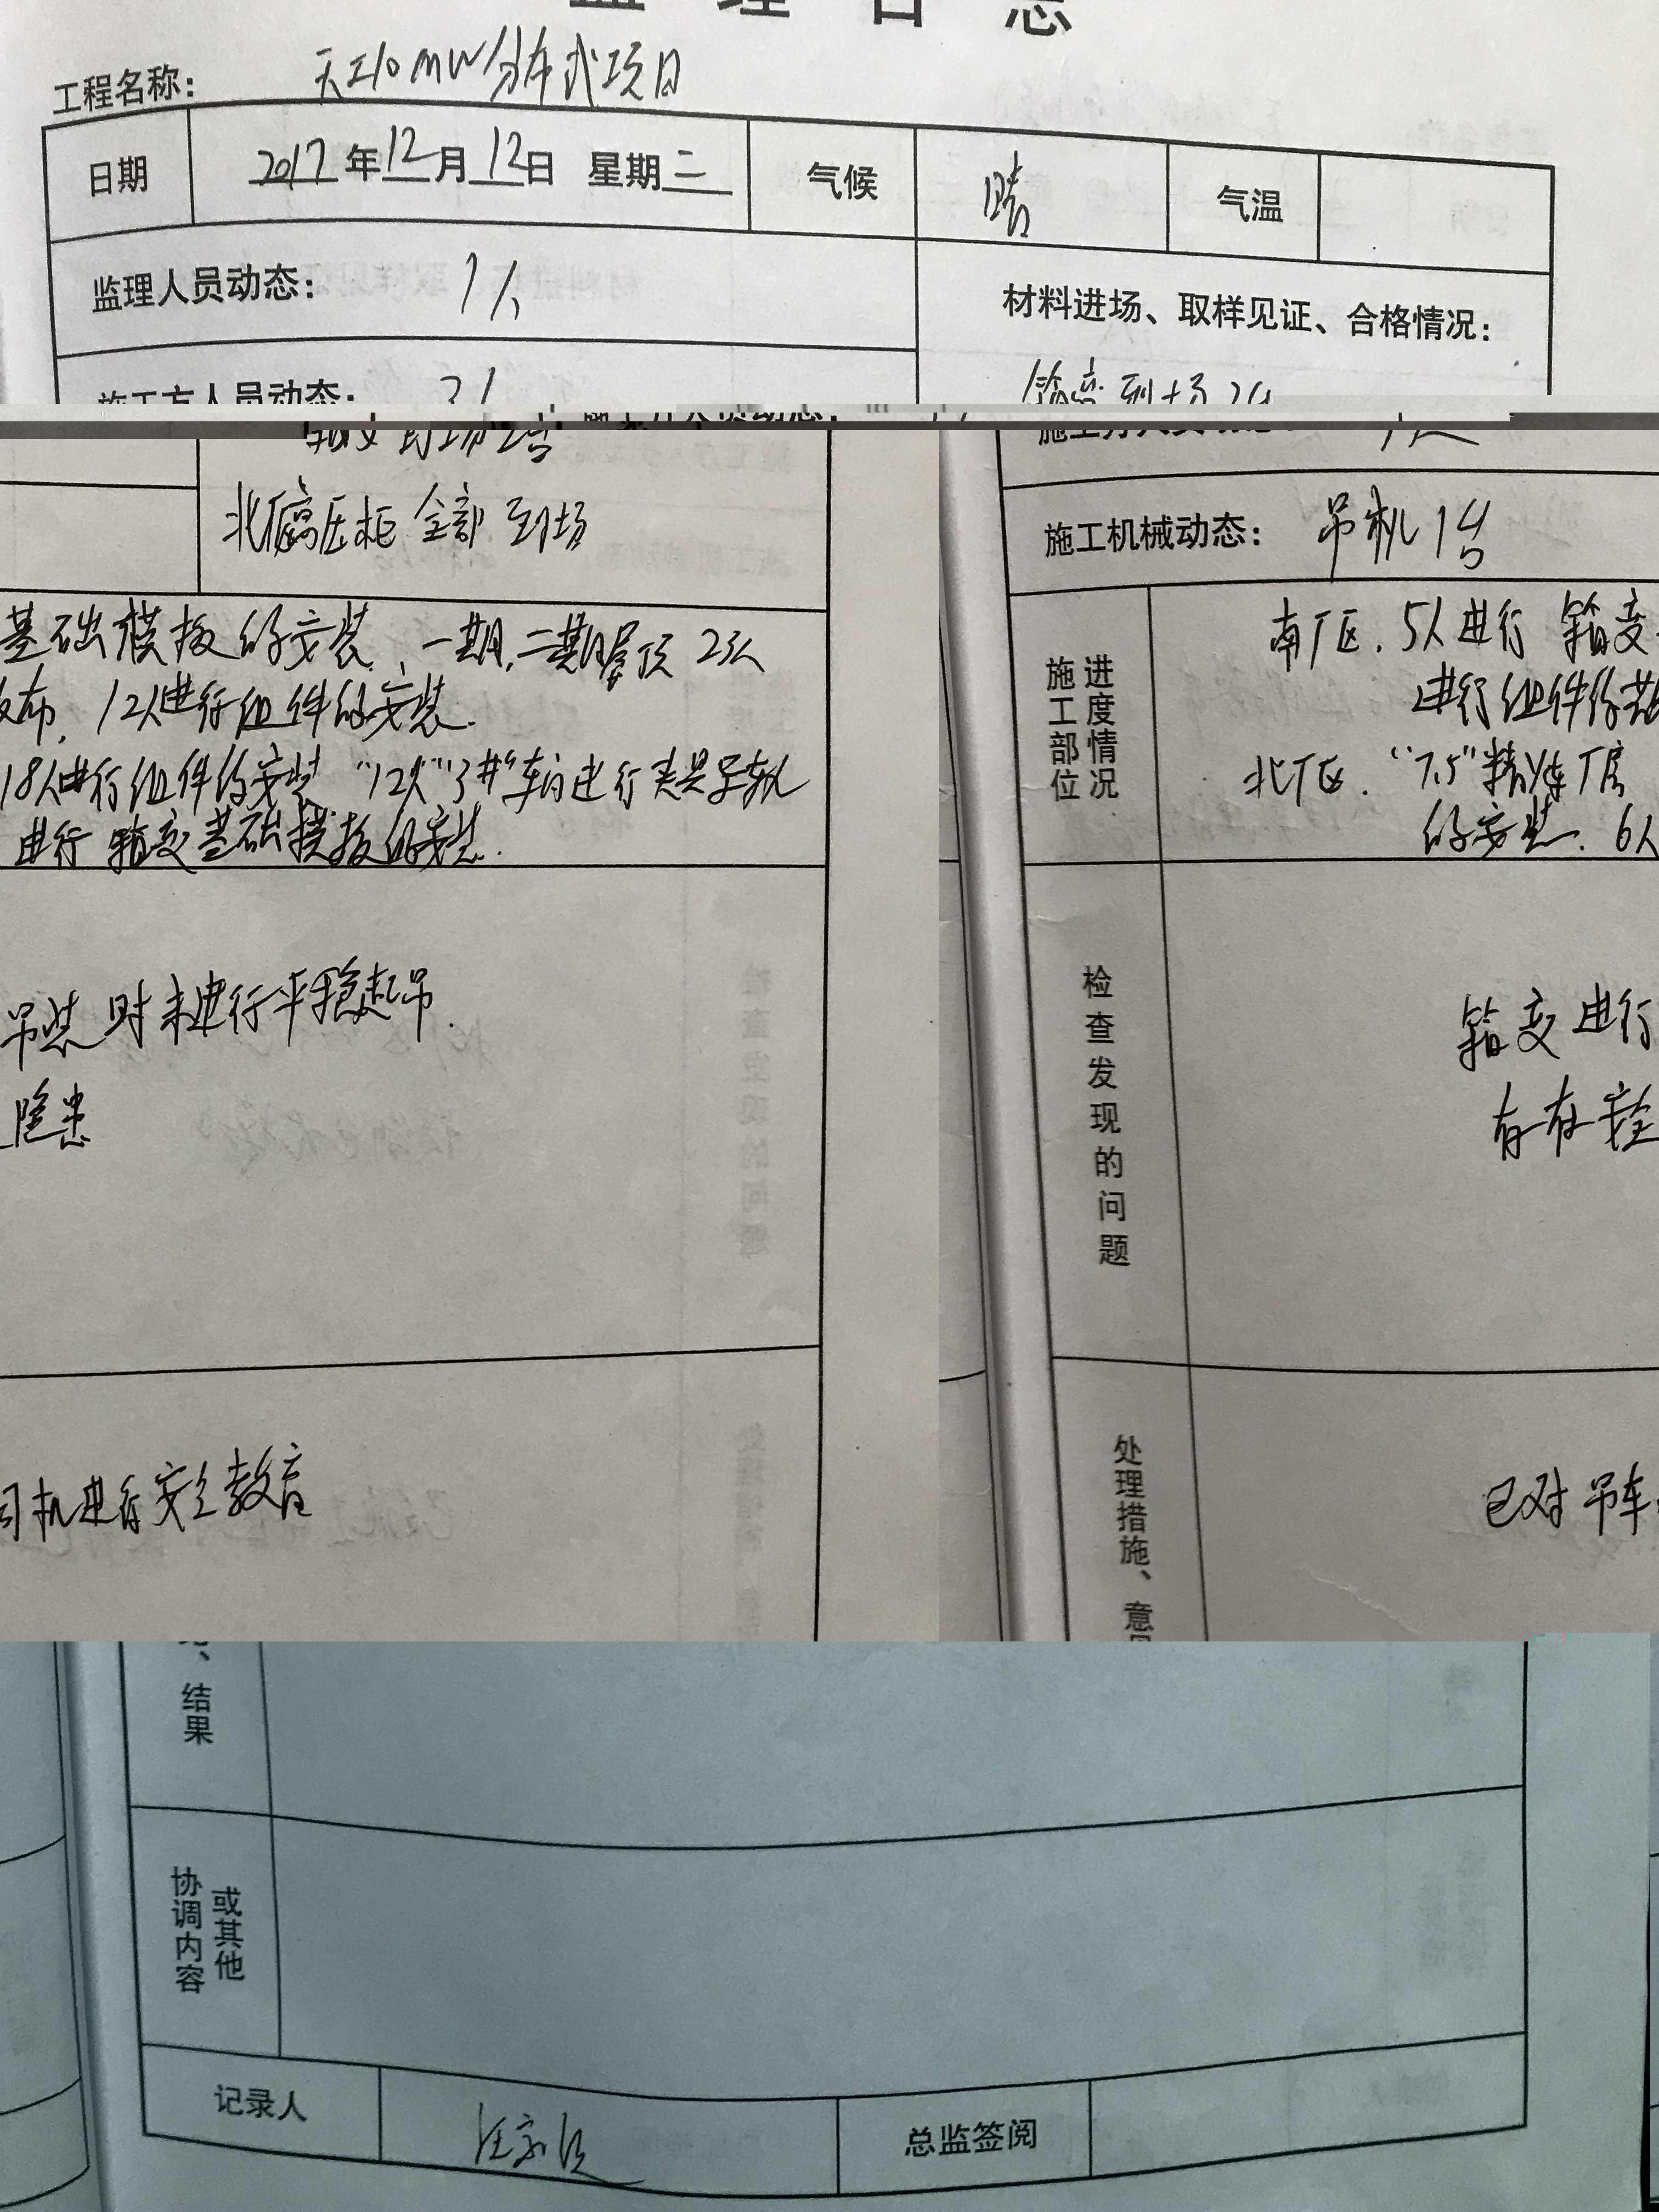 监理日志
工程名称： 天工10MW分布式项目
日期 2017年12月12日 星期二 气候 晴 气温
监理人员动态： 1人
材料进场、取样见证、合格情况：
施工方人员动态：
箱变到场2台
北厂高压柜全部到场
基础模板的安装、一期,二期屋顶23人
布, 12人进行组件的安装.
18人进行组件的安装 车间进行夹具
进行箱变基础模板的安装.
吊装时未进行平稳起吊.
隐患
司机进行安全教育
施工方人员动态：
施工机械动态： 吊机1台
施工部位 进度情况
南厂区. 5人进行 箱变
进行组件的安
北厂区. "7.5"精炼厂房
的安装. 6人
检查发现的问题
箱变进行
存在安全
处理措施、意见
已对吊车
、结果
协调内容 或其他
记录人
总监签阅